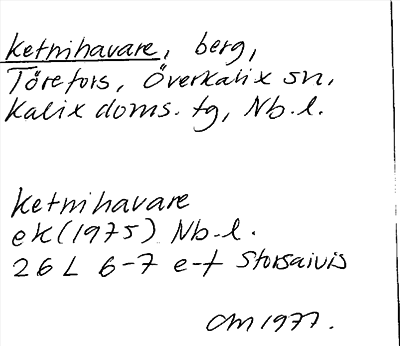 Ketnihavare, berg,
Törefors, Överkalix sn,
Kalix doms. tg, Nb. l.
Ketnihavare
ek (1975) Nb. l.
26 L 6-7 e-f Storsaivis
CM 1977.